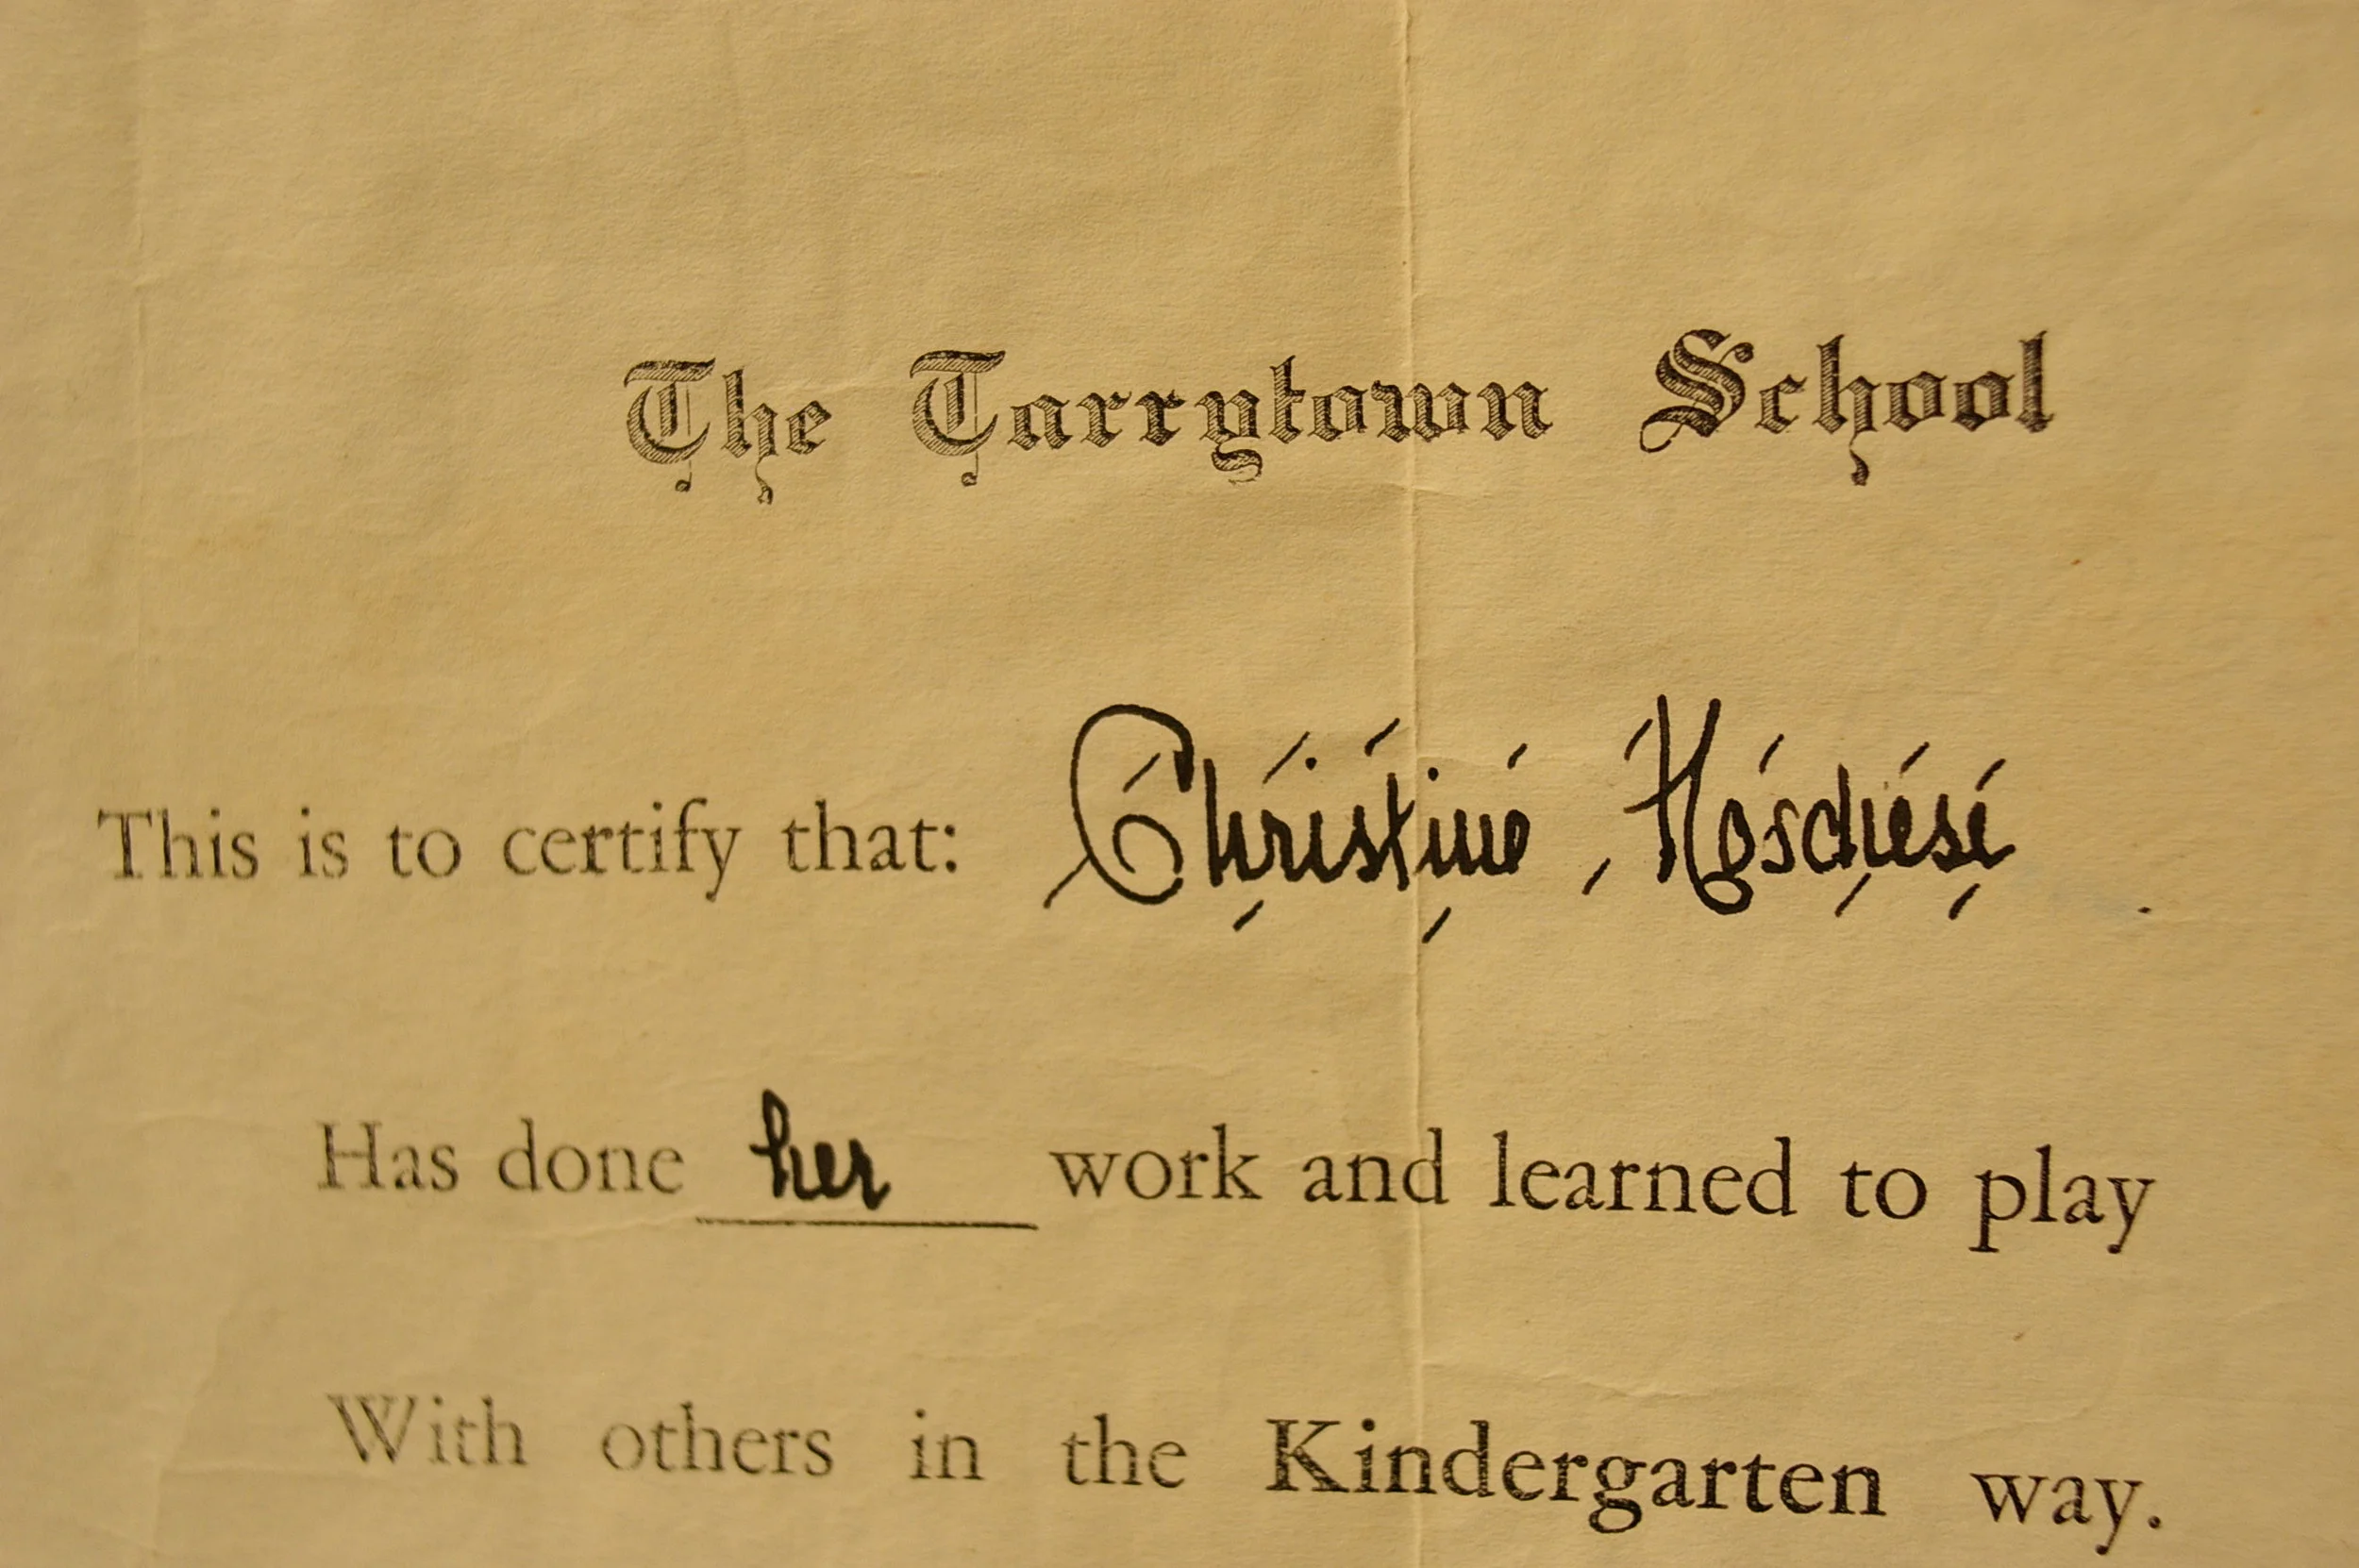 The Tarrytown School
This is to certify that: Christine
Has done her work and learned to play
With others in the Kindergarten way.